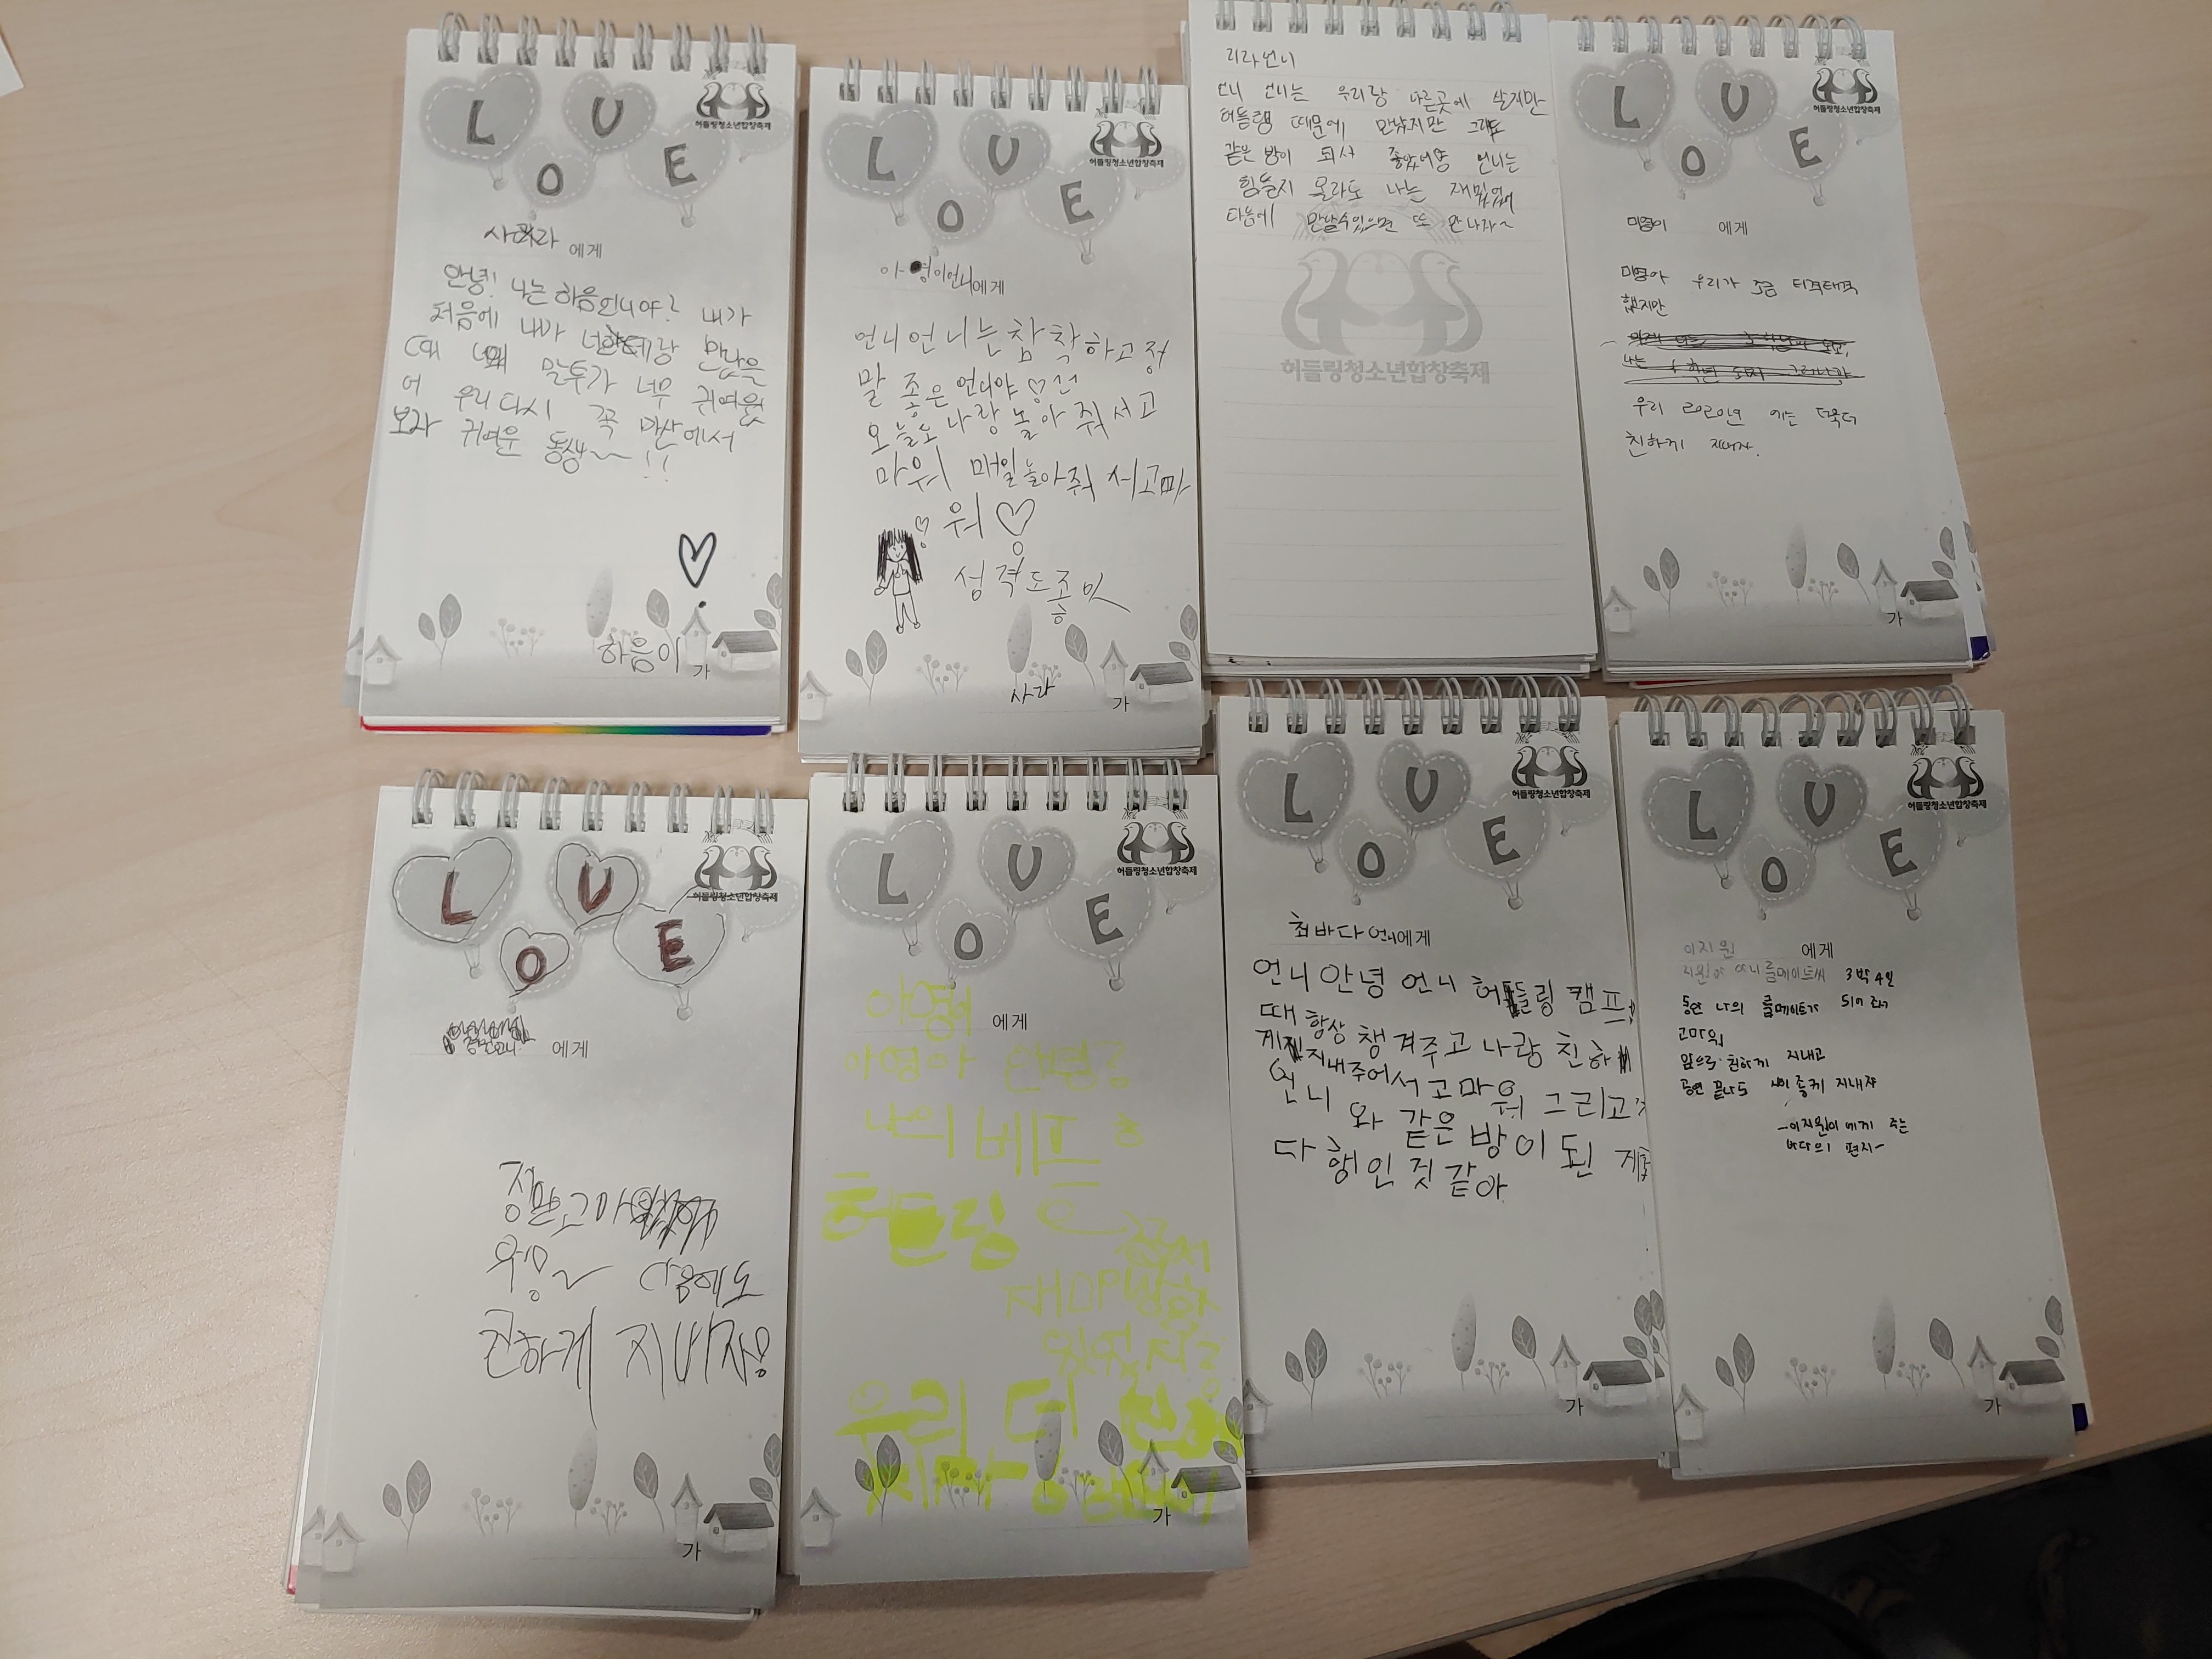 L U
O E
허들링청소년합창축제
사라 에게
안녕! 나는 하음언니야? 내가
처음에 내가 너한테랑 만났을
때 말투가 너무 귀여웠
어 우리 다시 꼭 마산에서
보자 귀여운 동생~!!
하음이 가
L U
O E
허들링청소년합창축제
아영이언니에게
언니언니는 참 착하고 정
말 좋은 언니야♡
오늘도 나랑 놀아 줘서 고
마워 매일 놀아줘서고마
워♡
성격도 좋
사라 가
리라언니
언니 언니는 우리랑 다른곳에 살지만
허들링 때문에 만났지만 그래도
같은 방이 되서 좋았어용 언니는
힘들지 몰라도 나는 재밌었어
다음에 만날수있으면 또 만나자~
허들링청소년합창축제
L U
O E
허들링청소년합창축제
미영이 에게
미영아 우리가 조금 티격태격
했지만
우리 2020년 에는 더욱더
친하게 지내자.
가
L U
O E
허들링청소년합창축제
에게
정말고마
워~ 다음에도
친하게 지내자!
가
L U
O E
허들링청소년합창축제
아영이 에게
아영아 안녕?
나의 베프
허들링
재미
있었지?
우리 더
가
L U
O E
허들링청소년합창축제
최바다언니에게
언니 안녕 언니 허들링 캠프
때 항상 챙겨주고 나랑 친하
게 지내주어서 고마워 그리고
언니와 같은 방이 된 게
다행인 것 같아
가
L U
O E
허들링청소년합창축제
이지원 에게
지원아 룸메이트 3박4일
동안 나의 룸메이트가 되어 줘서
고마워
앞으로 친하게 지내고
공연 끝나도 사이 좋게 지내자
-이지원이에게 주는
바다의 편지-
가